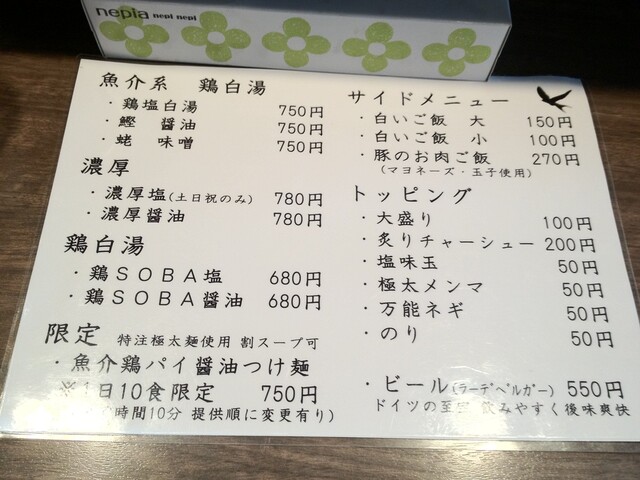 nepia nepi nepi
魚介系 鶏白湯
・鶏塩白湯 750円
・鰹 醤油 750円
・蛯 味噌 750円
濃厚
・濃厚塩(土日祝のみ) 780円
・濃厚醤油 780円
鶏白湯
・鶏SOBA塩 680円
・鶏SOBA醤油 680円
限定 特注極太麺使用 割スープ可
・魚介鶏パイ醤油つけ麺
※1日10食限定 750円
の時間10分 提供順に変更有り)
サイドメニュー
・白いご飯 大 150円
・白いご飯 小 100円
・豚のお肉ご飯 270円
(マヨネーズ・玉子使用)
トッピング
・大盛り 100円
・炙りチャーシュー 200円
・塩味玉 50円
・極太メンマ 50円
・万能ネギ 50円
・のり 50円
・ビール(ラーデベルガー) 550円
ドイツの至宝 飲みやすく後味爽快